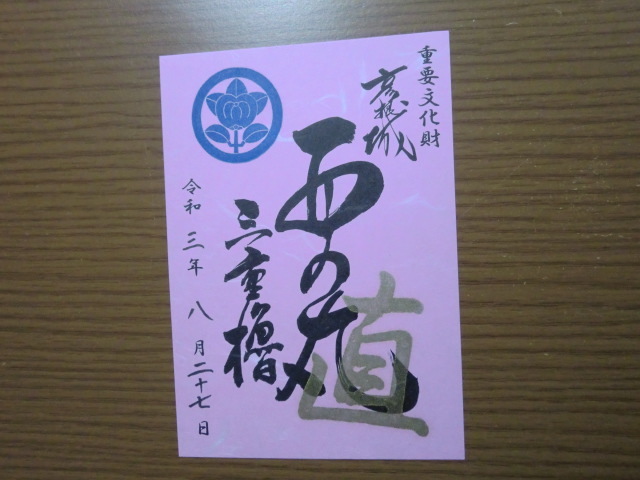 重要文化財
彦根城
西の丸
三重櫓
直
令和三年八月二十七日